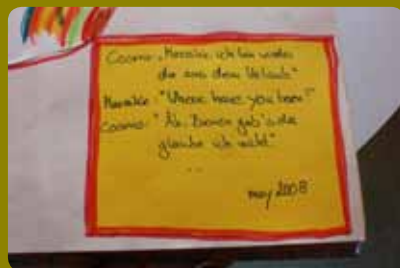 Cosmo: „Mareike, ich bin wieder
da aus dem Urlaub"
Mareike: "Where have you been?"
Cosmo: "Äh. Bienen gab's da
glaube ich nicht".
...
may 2008